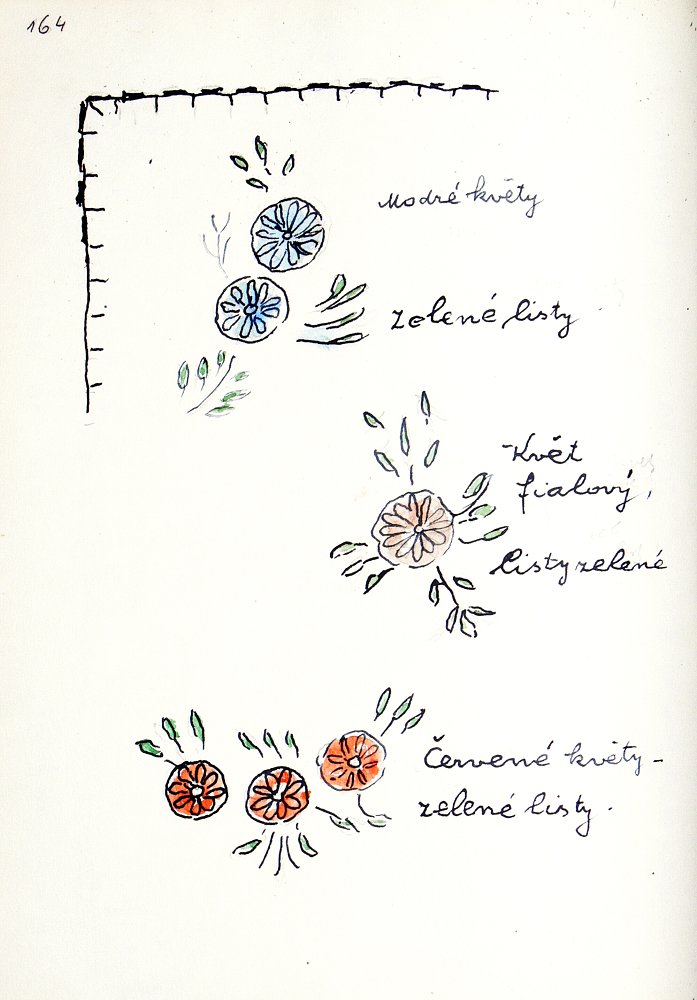 164
Modré květy
zelené listy
Květ
fialový,
listy zelené
Červené květy -
zelené listy.